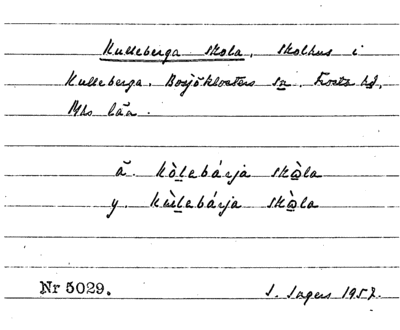 Kulleberga skola. Skolhus i
Kulleberga. Bosjöklosters sn. Frosta hd,
Mhs län.
ä. kòlebárja skòla
y. kùlebárja skòla
Nr 5029. I. Ingers 1957.